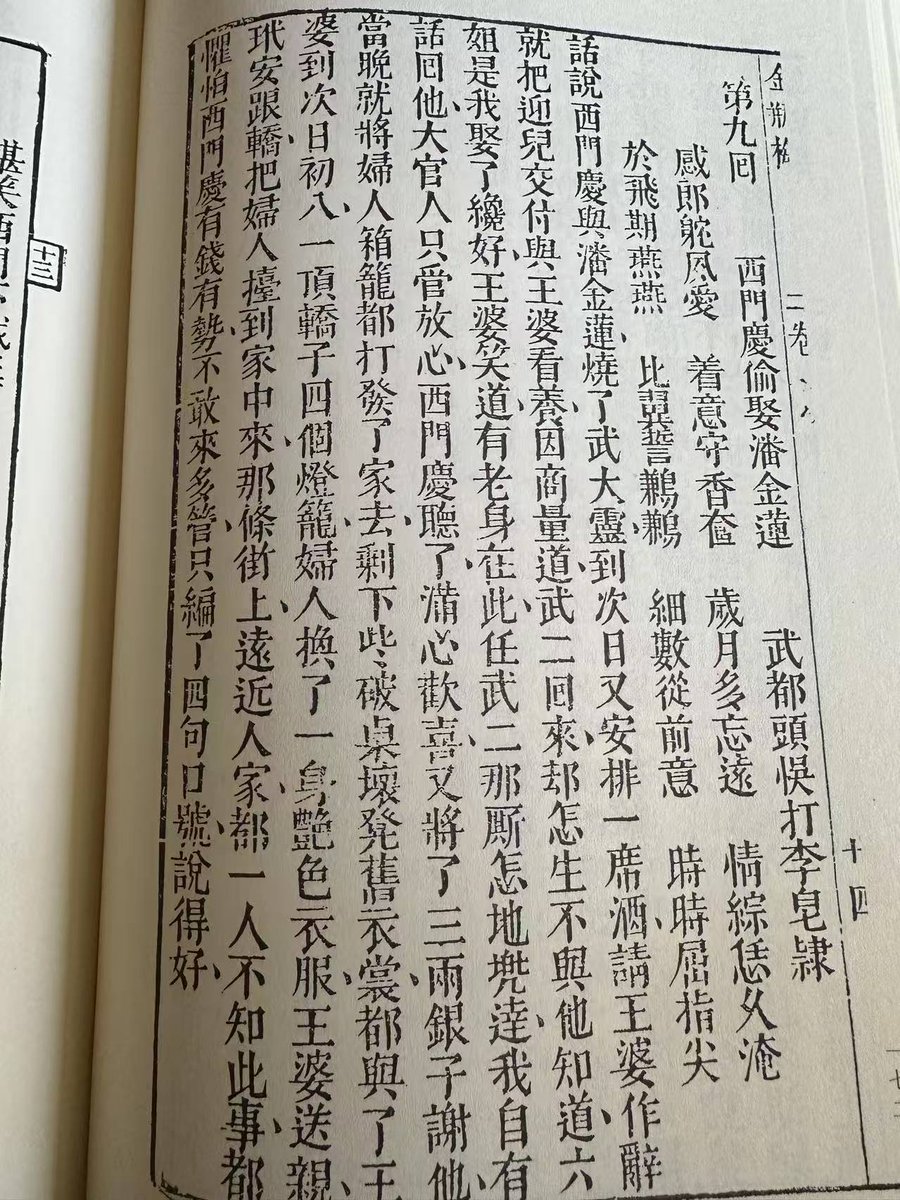 金瓶梅 二卷 十四
第九回 西門慶偷娶潘金蓮 武都頭悞打李皂隷
感郎躭夙愛 着意守香奩 歲月多忘遠 情綜恁久淹
於飛期燕燕 比翼誓鶼鶼 細數從前意 時時屈指尖
話說西門慶與潘金蓮燒了武大靈、到次日又安排一席酒、請王婆作辭
就把迎兒交付與王婆看養、因商量道、武二回來、却怎生不與他知道六
姐是我娶了纔好、王婆笑道、有老身在此、任武二那厮怎地兠達、我自有
話回他、大官人只管放心、西門慶聽了滿心歡喜、又將了三兩銀子謝他、
當晚就將婦人箱籠、都打發了家去、剩下些、破桌壞凳舊衣裳、都與了王
婆、到次日初八、一頂轎子、四個燈籠、婦人換了一身艷色衣服、王婆送親、
玳安跟轎、把婦人擡到家中來、那條街上、遠近人家、都一人不知此事、都
懼怕西門慶有錢有勢、不敢來多管、只編了四句口號、說得好、
十三